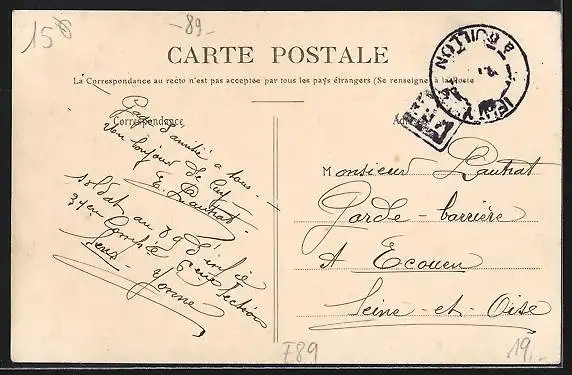 15
-89-
CARTE POSTALE
La Correspondance au recto n'est pas acceptée par tous les pays étrangers (Se renseigner à la Poste
Correspondance
Gage d'amitié a tous
bonjour de
E. Lautrat
soldat au 89 d'inf ie
34em Compie 6eme section
Sens Yonne
Monsieur Lautrat
Garde-barrière
A Ecouen
Seine-et-Oise
E89
19,-